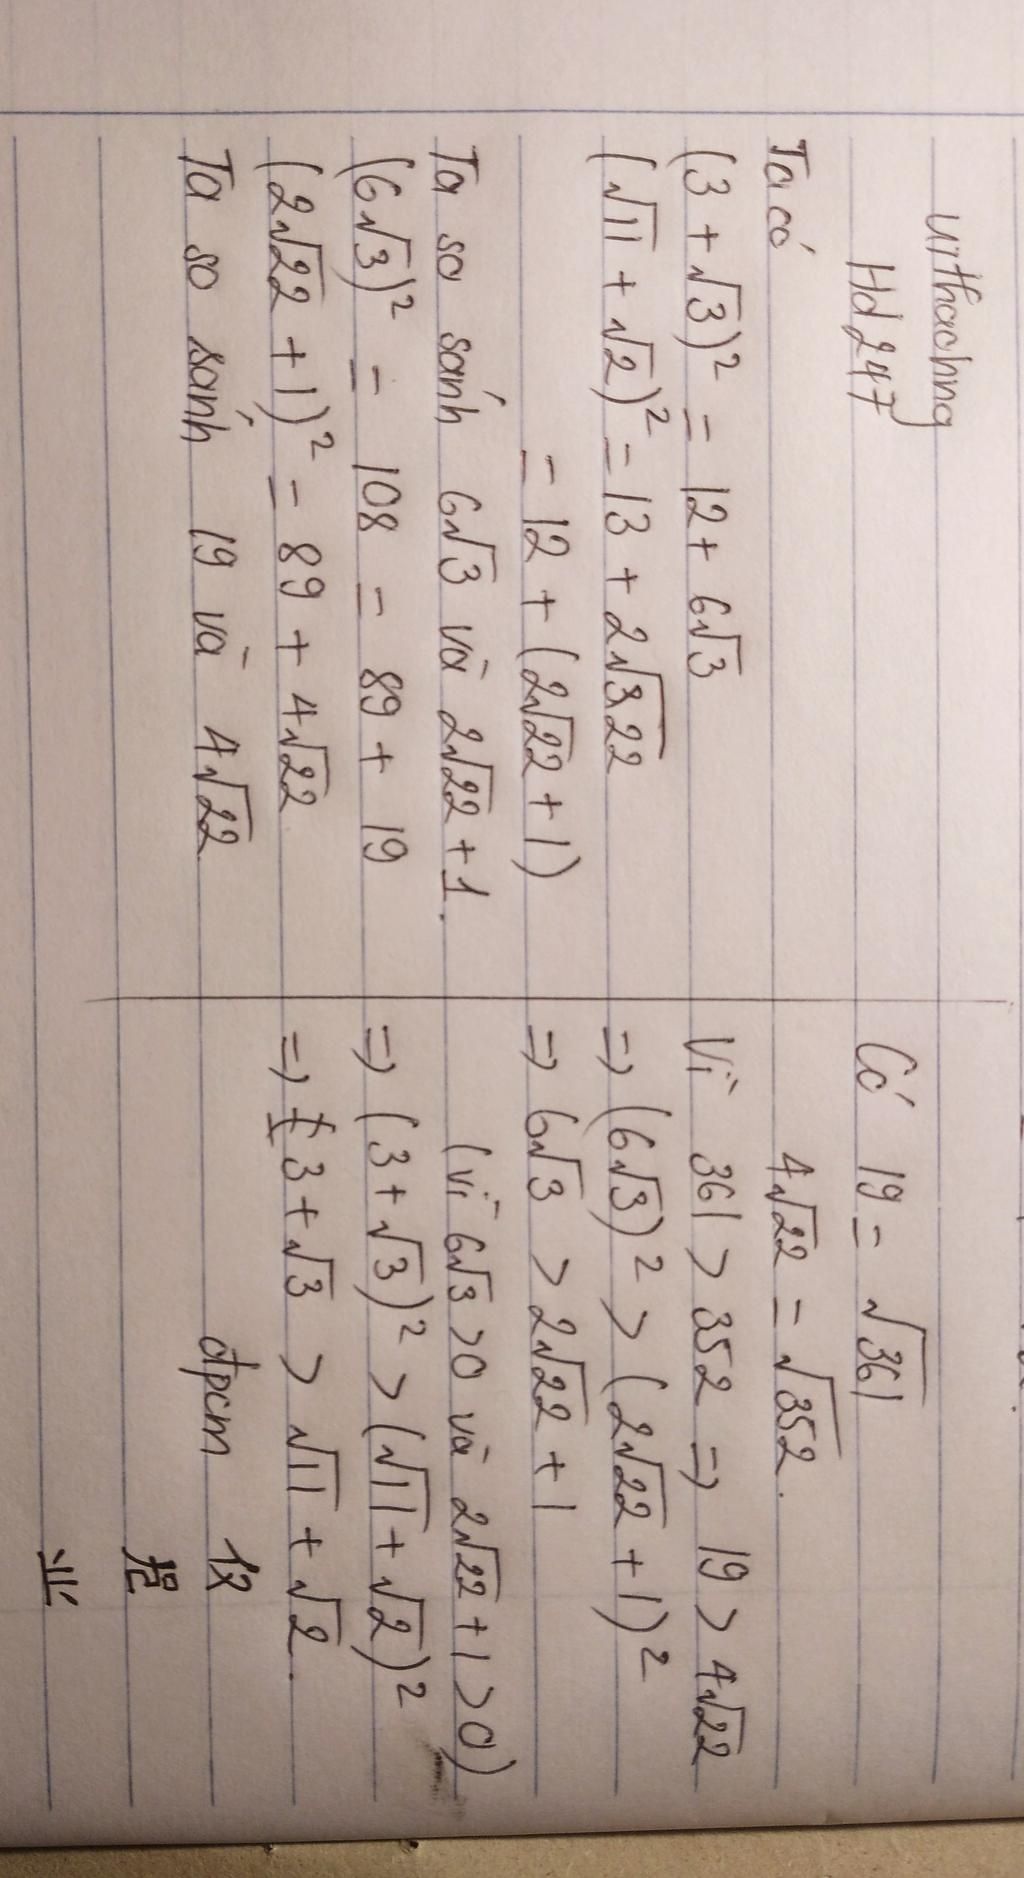 urthachng
Hd 247
Ta có
(3 + √3)² = 12 + 6√3
(√11 + √2)² = 13 + 2√22
= 12 + (2√22 + 1)
Ta so sánh 6√3 và 2√22 + 1.
(6√3)² = 108 = 89 + 19
(2√22 + 1)² = 89 + 4√22
Ta so sánh 19 và 4√22
Có 19 = √361
4√22 = √352.
Vì 361 > 352 => 19 > 4√22
=> (6√3)² > (2√22 + 1)²
=> 6√3 > 2√22 + 1
(vì 6√3 > 0 và 2√22 + 1 > 0)
=> (3 + √3)² > (√11 + √2)²
=> 3 + √3 > √11 + √2.
đpcm